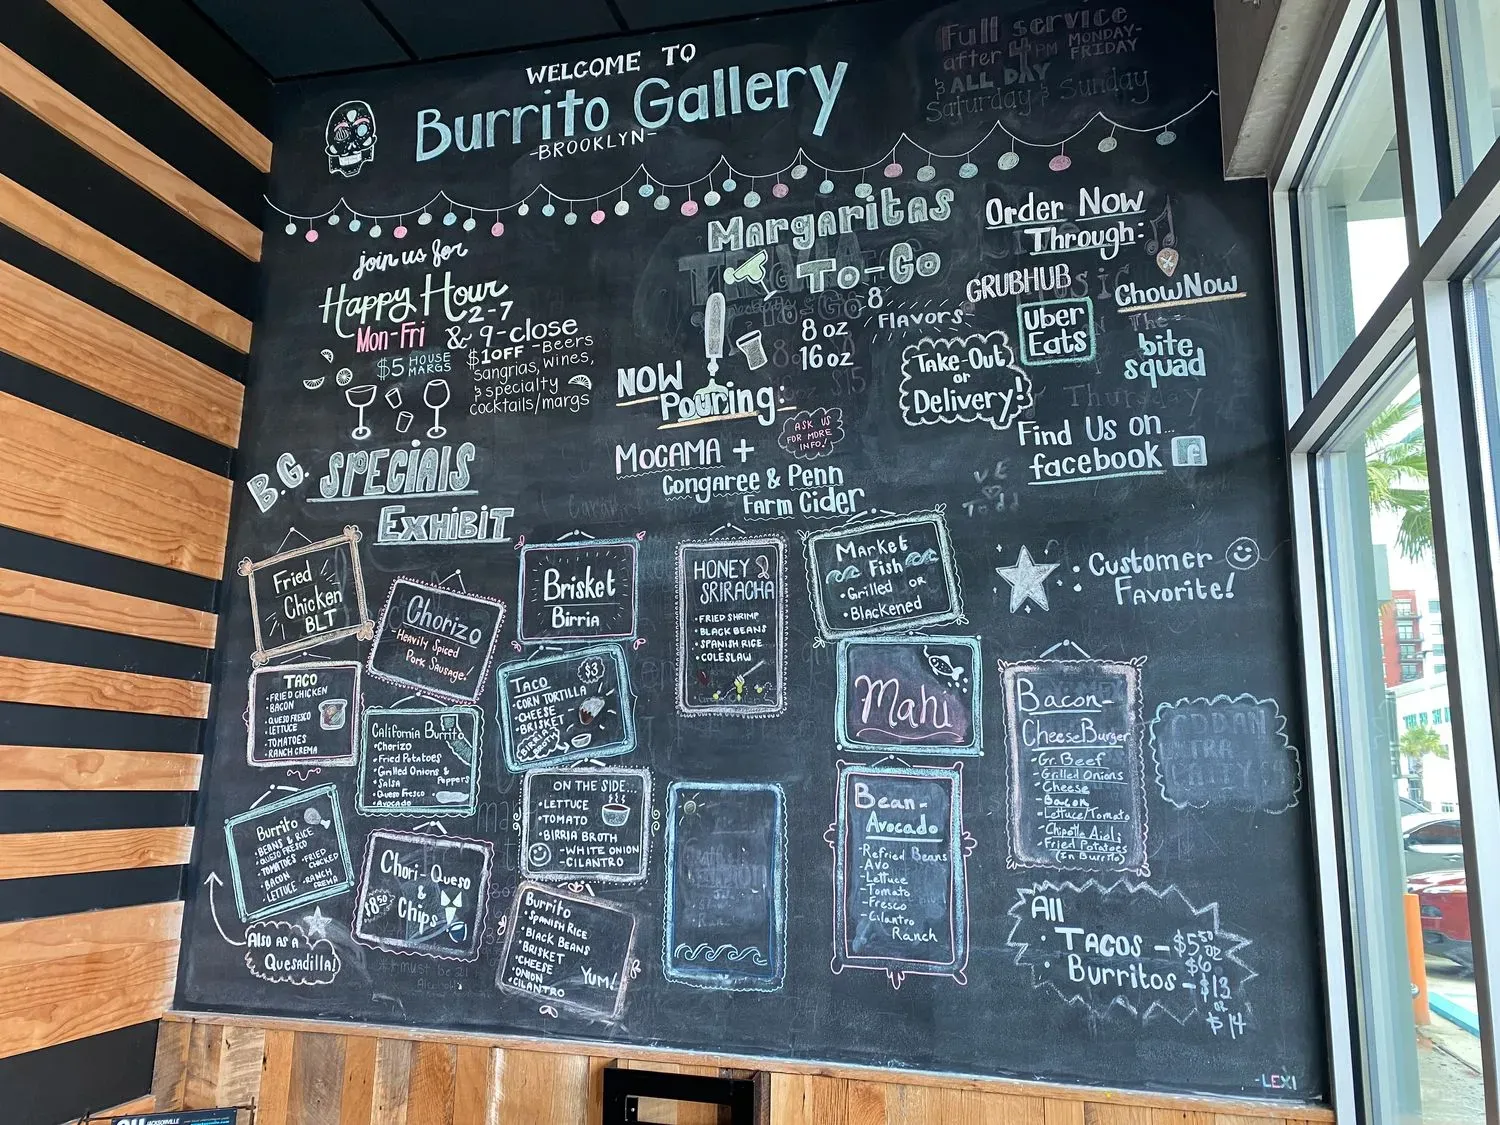 WELCOME TO
Burrito Gallery
-BROOKLYN-
Full service
after 4 PM MONDAY-
FRIDAY
& ALL DAY
Saturday & Sunday
join us for
Happy Hour
2-7
Mon-Fri & 9-close
$5 HOUSE
MARGS
$1 OFF - Beers
sangrias, wines,
& specialty
cocktails/margs
Margaritas
To-Go
8
Flavors
8 oz
16 oz
NOW
Pouring:
ASK US
FOR MORE
INFO!
MOCAMA +
Congaree & Penn
Farm Cider
Order Now
Through:
GRUBHUB
ChowNow
Uber
Eats
The
bite
squad
Take-Out
or
Delivery!
Thursday
Find Us on...
facebook f
B.G. SPECIALS
EXHIBIT
Fried
Chicken
BLT
TACO
• FRIED CHICKEN
• BACON
• QUESO FRESCO
• LETTUCE
• TOMATOES
• RANCH CREMA
Burrito
• BEANS & RICE
• QUESO FRESCO
• TOMATOES
• BACON
• LETTUCE
• FRIED
CHICKED
• RANCH
CREMA
Also as a
Quesadilla!
Chorizo
- Heavily Spiced
Pork Sausage!
California Burrito
• Chorizo
• Fried Potatoes
• Grilled Onions &
Peppers
• Salsa
• Queso Fresco
• Avocado
Chori-Queso
&
Chips
$8.50
Brisket
Birria
TACO
$3
• CORN TORTILLA
• CHEESE
• BRISKET
BIRRIA
BROTH
ON THE SIDE...
• LETTUCE
• TOMATO
• BIRRIA BROTH
- WHITE ONION
- CILANTRO
Burrito
• SPANISH RICE
• BLACK BEANS
• BRISKET
• CHEESE
• ONION
• CILANTRO
YUM!
HONEY
SRIRACHA
• FRIED SHRIMP
• BLACK BEANS
• SPANISH RICE
• COLESLAW
Market
Fish
• Grilled OR
• Blackened
Mahi
Bean-
Avocado
- Refried Beans
- Avo
- Lettuce
- Tomato
- Fresco
- Cilantro
Ranch
: Customer
Favorite!
Bacon-
CheeseBurger
- Gr. Beef
- Grilled Onions
- Cheese
- Bacon
- Lettuce/Tomato
- Chipotle Aioli
- Fried Potatoes
(In Burrito)
All
• TACOS - $5.50 or
$6
• Burritos - $13
or
$14
-LEXI
JACKSONVILLE